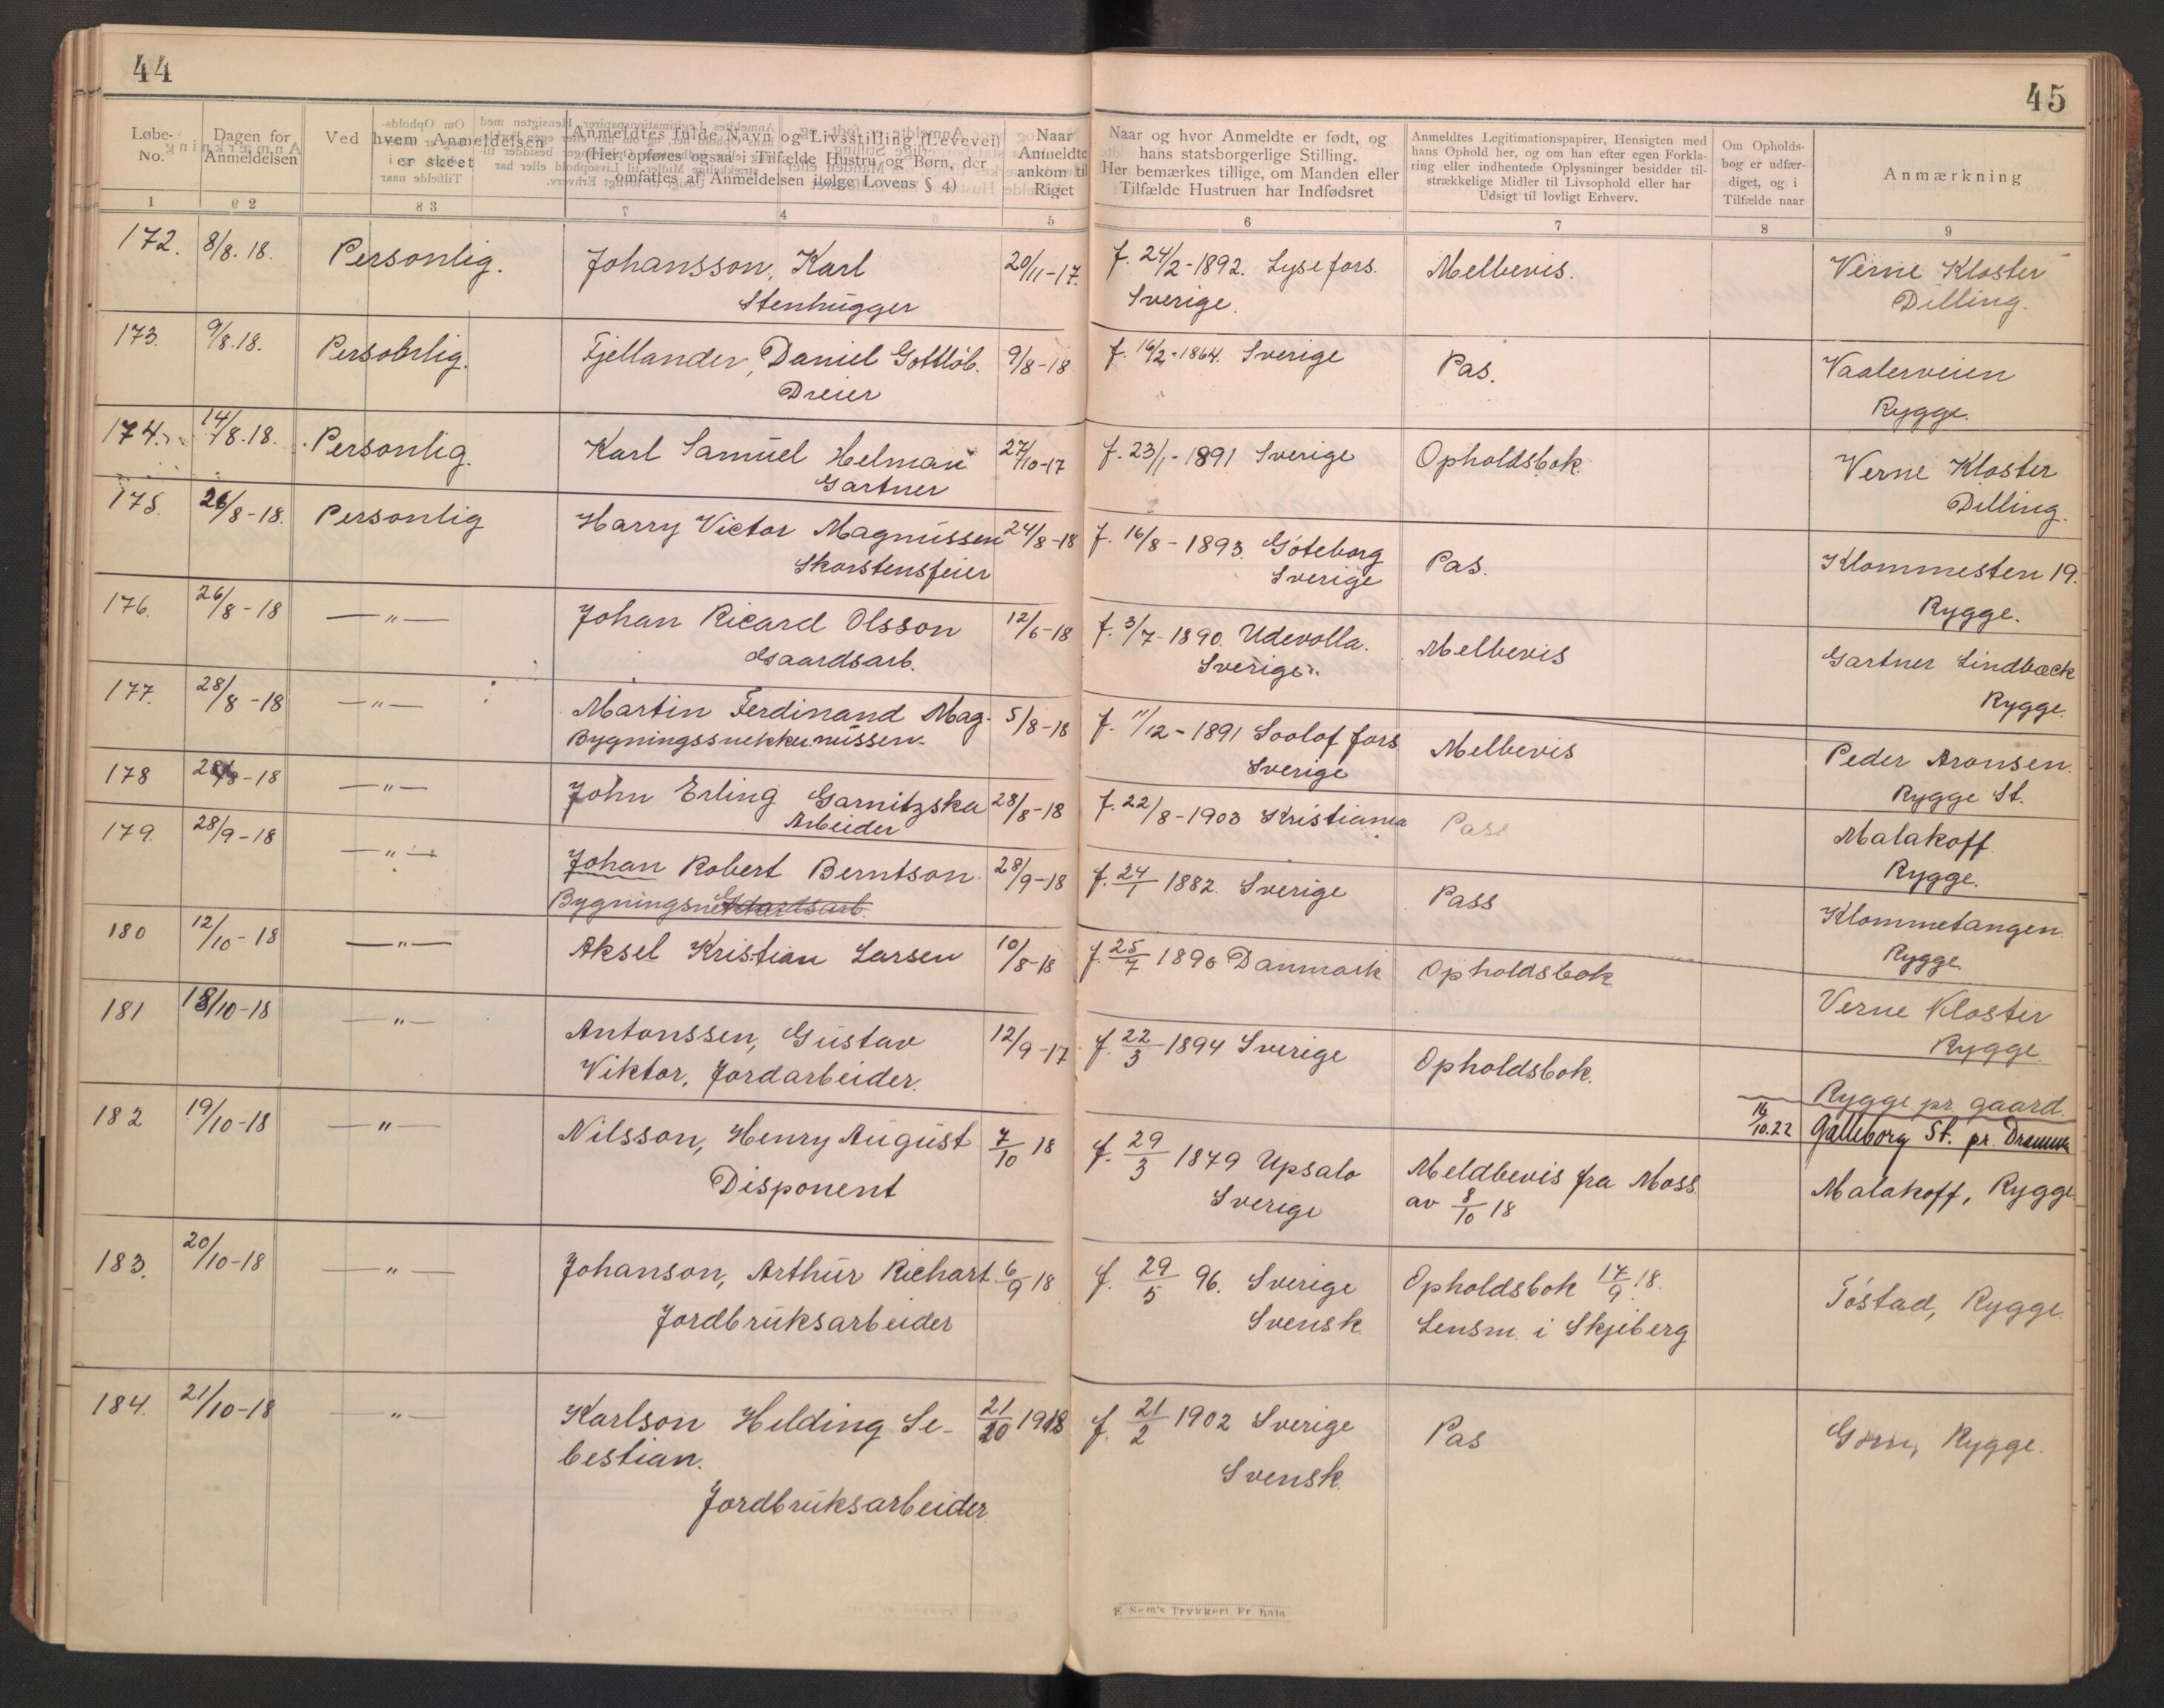 44
45
Løbe-No.
Dagen for Anmeldelsen
Ved hvem Anmeldelsen er skeet
Anmeldtes fulde Navn og Livsstilling (Levevei)
(Her opføres ogsaa i Tilfælde Hustru og Børn, der
omfattes af Anmeldelsen ifølge Lovens § 4)
Naar Anmeldte ankom til Riget
Naar og hvor Anmeldte er født, og
hans statsborgerlige Stilling.
Her bemærkes tillige, om Manden eller
Tilfælde Hustruen har Indfødsret
Anmeldtes Legitimationspapirer, Hensigten med
hans Ophold her, og om han efter egen Forkla-
ring eller indhentede Oplysninger besidder til-
strækkelige Midler til Livsophold eller har
Udsigt til lovligt Erhverv.
Om Opholds-
bog er udfær-
diget, og i
Tilfælde naar
Anmærkning
1 2 3 4 5 6 7 8 9
172. 8/8. 18. Personlig. Johansson, Karl 20/11-17. f. 24/2-1892. Lysefors. Melbevis. Verne Kloster
Stenhugger Sverige. Dilling.
173. 9/8.18. Personlig. Fjellander, Daniel Gottlob. 9/8-18 f. 16/2-1864. Sverige Pas. Vaalerveien
Dreier Rygge.
174. 14/8.18. Personlig. Karl Samuel Helman 27/10-17 f. 23/1-1891 Sverige Opholdsbok. Verne Kloster
Gartner Dilling.
175. 26/8-18. Personlig Harry Victor Magnussen 24/8-18 f. 16/8-1893. Göteborg Pas. Klommesten 19.
Skorstensfeier Sverige Rygge.
176. 26/8-18 —"— Johan Ricard Olsson 12/6-18 f. 3/7-1890. Udevolla. Melbevis Gartner Lindbæck
Gaardsarb. Sverige. Rygge.
177. 28/8-18 —"— Martin Ferdinand Mag- 5/8-18 f. 11/12-1891 Soolof fors Melbevis Peder Aronsen.
Bygningssnekker. nussen. Sverige Rygge St.
178 28/8-18 —"— John Erling Garnitzska 28/8-18 f. 22/8-1903 Kristiania Pass Malakoff
Arbeider Rygge.
179. 28/9-18 —"— Johan Robert Berntson 28/9-18 f. 24/1 1882. Sverige Pass Klommetangen
Bygningsnekker Gaardsarb. Rygge.
180 12/10-18 —"— Aksel Kristian Larsen 10/8-18 f. 25/7 1896 Danmark Opholdsbok Verne Kloster
Rygge.
181 18/10-18 —"— Antonssen, Gustav 12/9-17 f. 22/3-1894 Sverige Opholdsbok. Rygge pr. gaard.
Viktor, Jordarbeider. 16/10.22 Galleborg St. pr. Drammen
182 19/10-18 —"— Nilsson, Henry August 7/10 18 f. 29/3 1879 Upsala Meldbevis fra Moss Malakoff, Rygge.
Disponent Sverige av 8/10 18
183. 20/10-18 —"— Johanson, Arthur Richart 6/9 18 f. 29/5 96. Sverige Opholdsbok 17/9 18. Tóstad, Rygge.
Jordbruksarbeider Svensk. Lensm. i Skjeberg
184. 21/10-18 —"— Karlson Helding Se- 21/10 1918 f. 21/2 1902 Sverige Pas Gorn, Rygge.
bestian. Svensk.
Jordbruksarbeider.